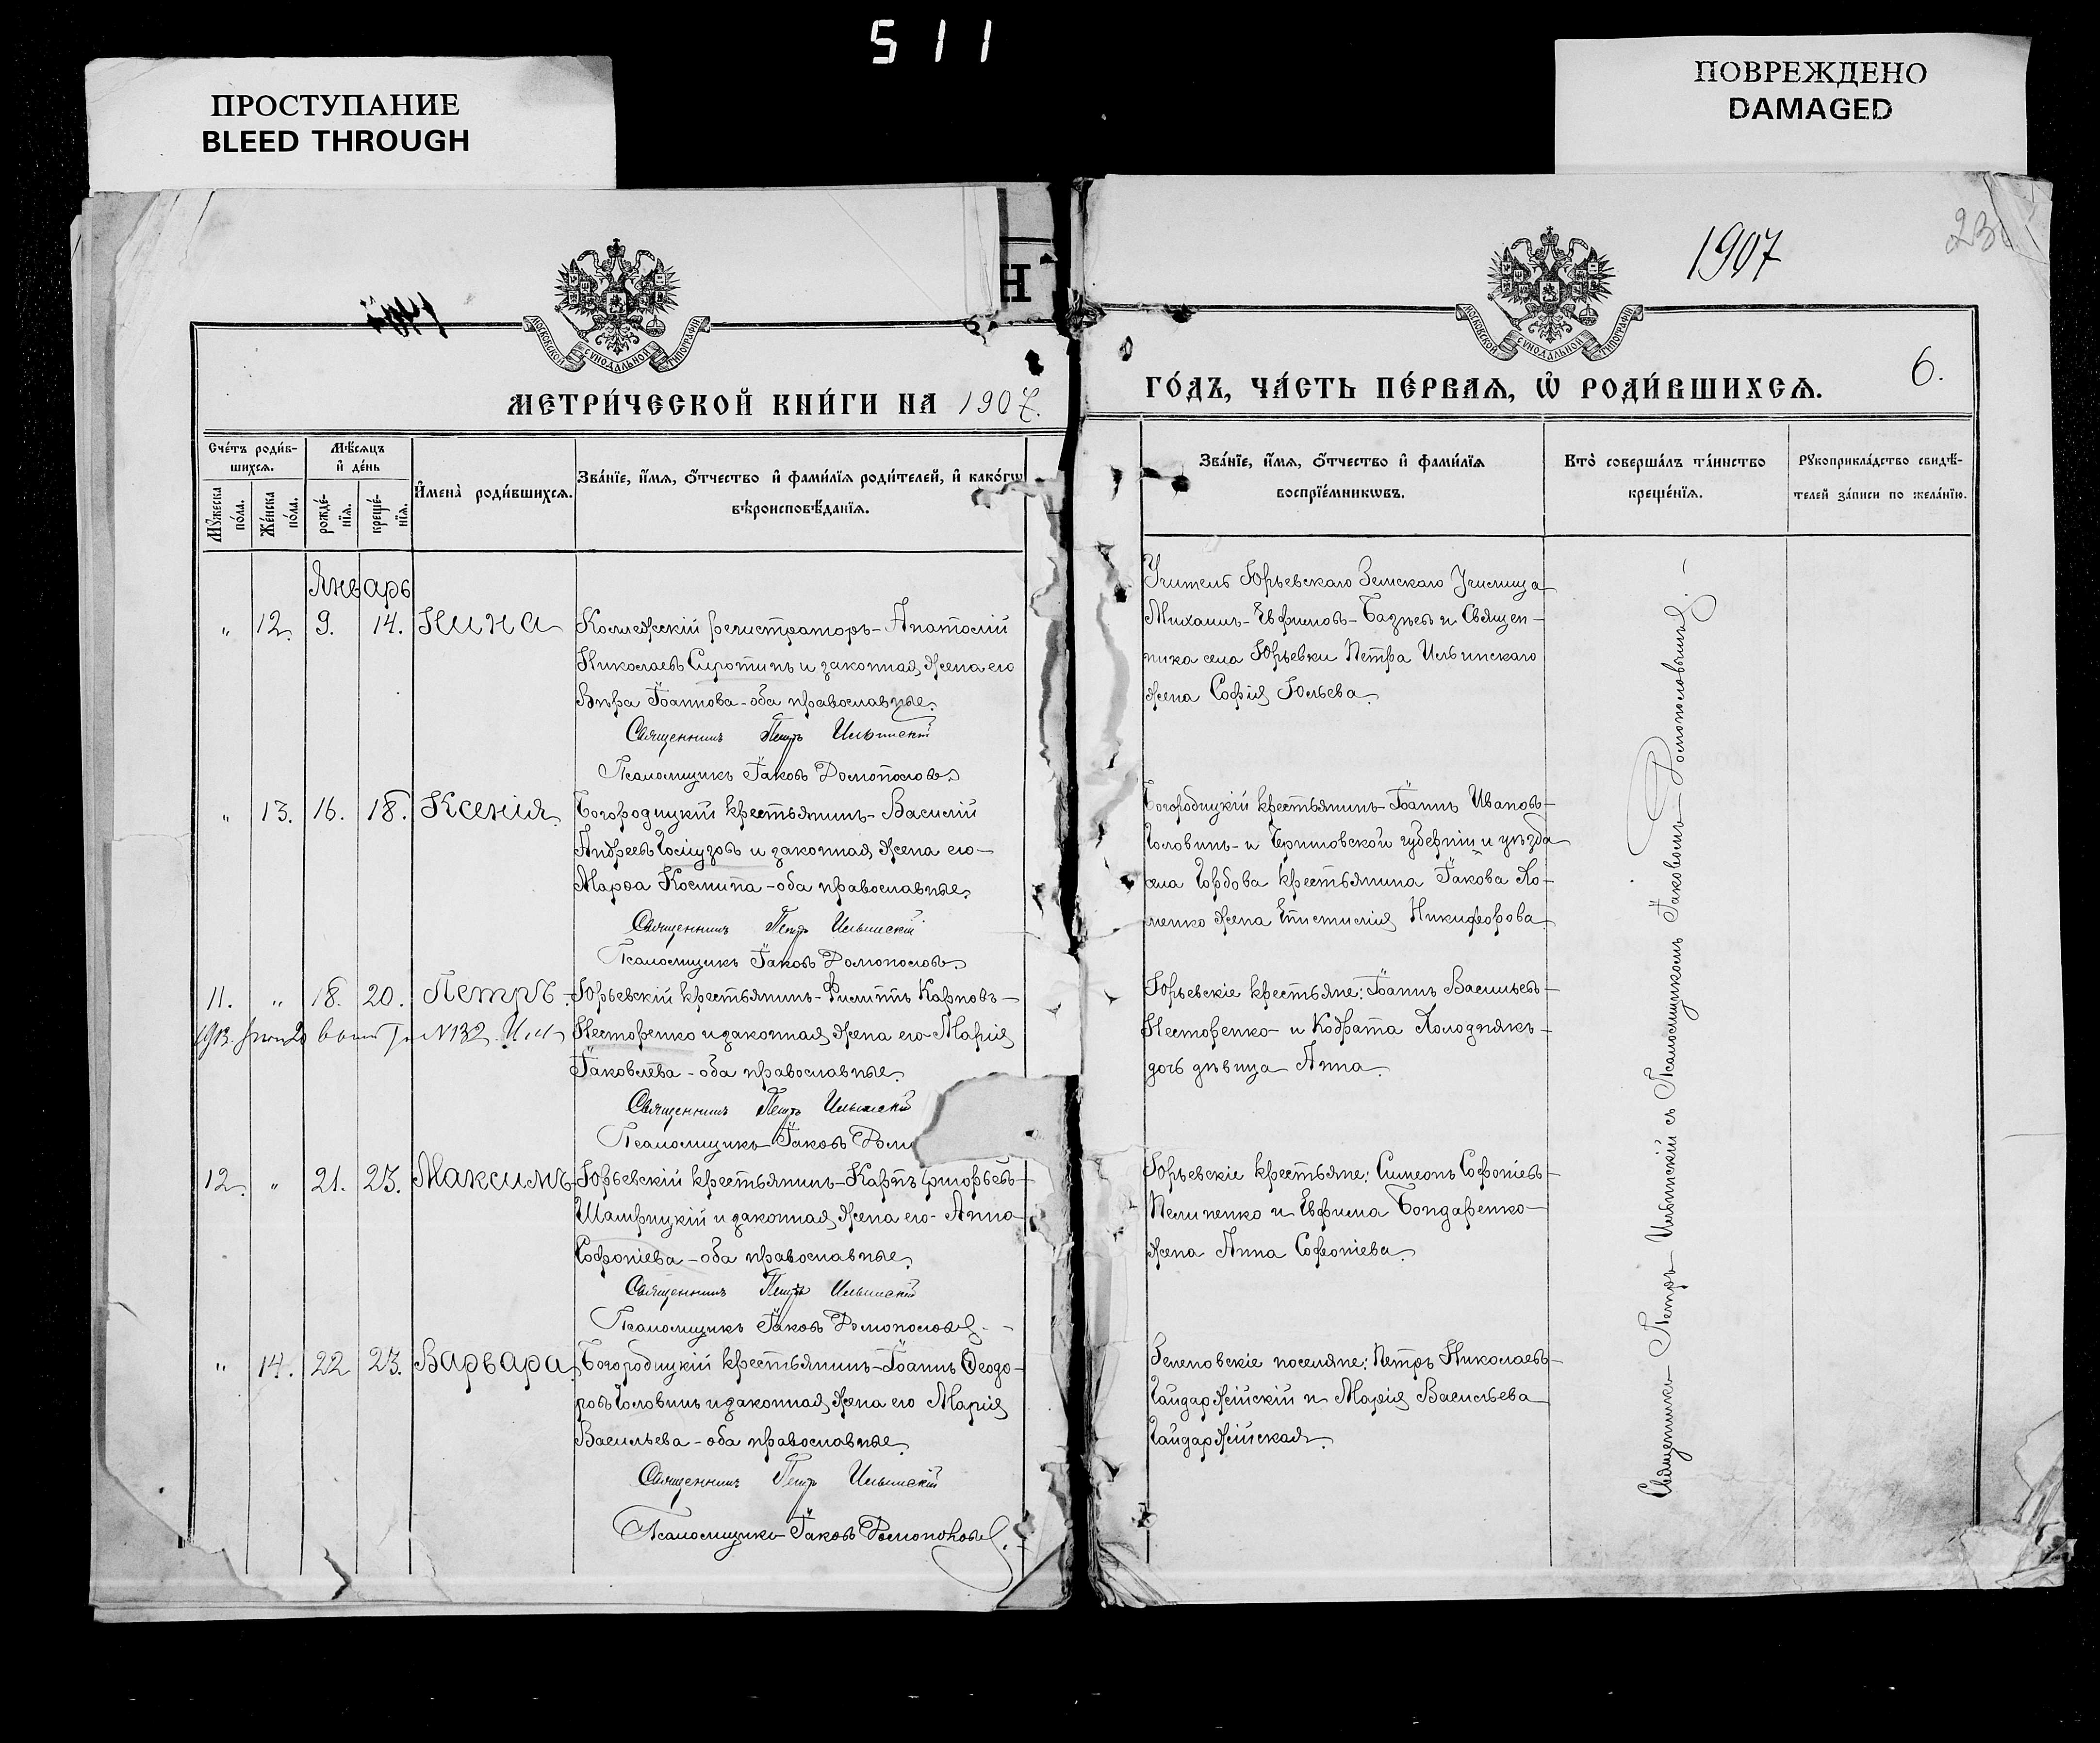 511
ПРОСТУПАНИЕ
BLEED THROUGH
ПОВРЕЖДЕНО
DAMAGED
1907
23
6.
Н
МОСКОВСКОЙ СУНОДАЛЬНОЙ ТИПОГРАФІИ
МОСКОВСКОЙ СУНОДАЛЬНОЙ ТИПОГРАФІИ
МЕТРИ́ЧЕСКОЙ КНИ́ГИ НА 1907.
ГО́ДЪ, ЧА́СТЬ ПЕ́РВАѦ, Ѽ РОДИ́ВШИХСѦ.
Сче́тъ роди́в-
шихсѧ.
Мꙋжеска по́ла.
Же́нска по́ла.
Мѣ́сѧцъ
и҆ де́нь
рожде́-
нїѧ.
креще́-
нїѧ.
И҆мена̀ роди́вшихсѧ.
Зва́нїе, и҆́мѧ, ѻ҆́тчество и҆ фами́лїѧ роди́телей, и҆ како́гѡ
вѣроисповѣ́данїѧ.
Зва́нїе, и҆́мѧ, ѻ҆́тчество и҆ фами́лїѧ
воспрїе́мникѡвъ.
Кто̀ соверша́лъ та́инство
креще́нїѧ.
Рꙋкоприкла́дство свидѣ́-
телей за́писи по жела́нїю.
Январь
" 12. 9. 14. Нина
Коллежскій регистраторъ - Анатолій
Николаевъ Сиротинъ и законная жена его
Вѣра Іоаннова - оба православные.
Священникъ Петръ Ильинскій
Псаломщикъ Іаковъ
Учитель Юрьевскаго Земскаго Училища
Михаилъ Евфимовъ и Священ-
ника села Юрьевки Петра Ильинскаго
жена Софія Юльева.
" 13. 16. 18. Ксенія
Богородицкій крестьянинъ - Василій
Андреевъ и законная жена его -
Марѳа Космина - оба православные.
Священникъ Петръ Ильинскій
Псаломщикъ Іаковъ
Богородицкій крестьянинъ - Іоаннъ Ивановъ -
Головинъ - и Черниговской губерніи и уѣзда
села крестьянина Іакова Хо-
менко жена Епистимія Никифорова.
11. " 18. 20. Петръ
Юрьевскій крестьянинъ - Филиппъ Карповъ -
1913. N132.
Несторенко и законная жена его Марія
Іаковлева - оба православные.
Священникъ Петръ Ильинскій
Псаломщикъ Іаковъ
Юрьевскіе крестьяне: Іоаннъ Васильевъ -
Несторенко - и Кодрата Холодникъ -
дочь дѣвица Анна.
12. " 21. 23. Максимъ
Юрьевскій крестьянинъ - Карпъ Григорьевъ -
и законная жена его - Анна
Софоніева - оба православные.
Священникъ Петръ Ильинскій
Псаломщикъ Іаковъ
Юрьевскіе крестьяне: Симеонъ Софоніевъ -
Пелипенко и Евфима Бондаренко -
жена Анна Софоніева.
" 14. 22 23. Варвара
Богородицкій крестьянинъ - Іоаннъ Ѳеодо-
ровъ Головинъ и законная жена его Марія
Васильева - оба православные.
Священникъ Петръ Ильинскій
Псаломщикъ Іаковъ
Зеленовскіе поселяне: Петръ Николаевъ -
Гайдаржійскій и Марія Васильева
Гайдаржійская.
Священникъ Петръ Ильинскій съ Псаломщикомъ Іаковомъ